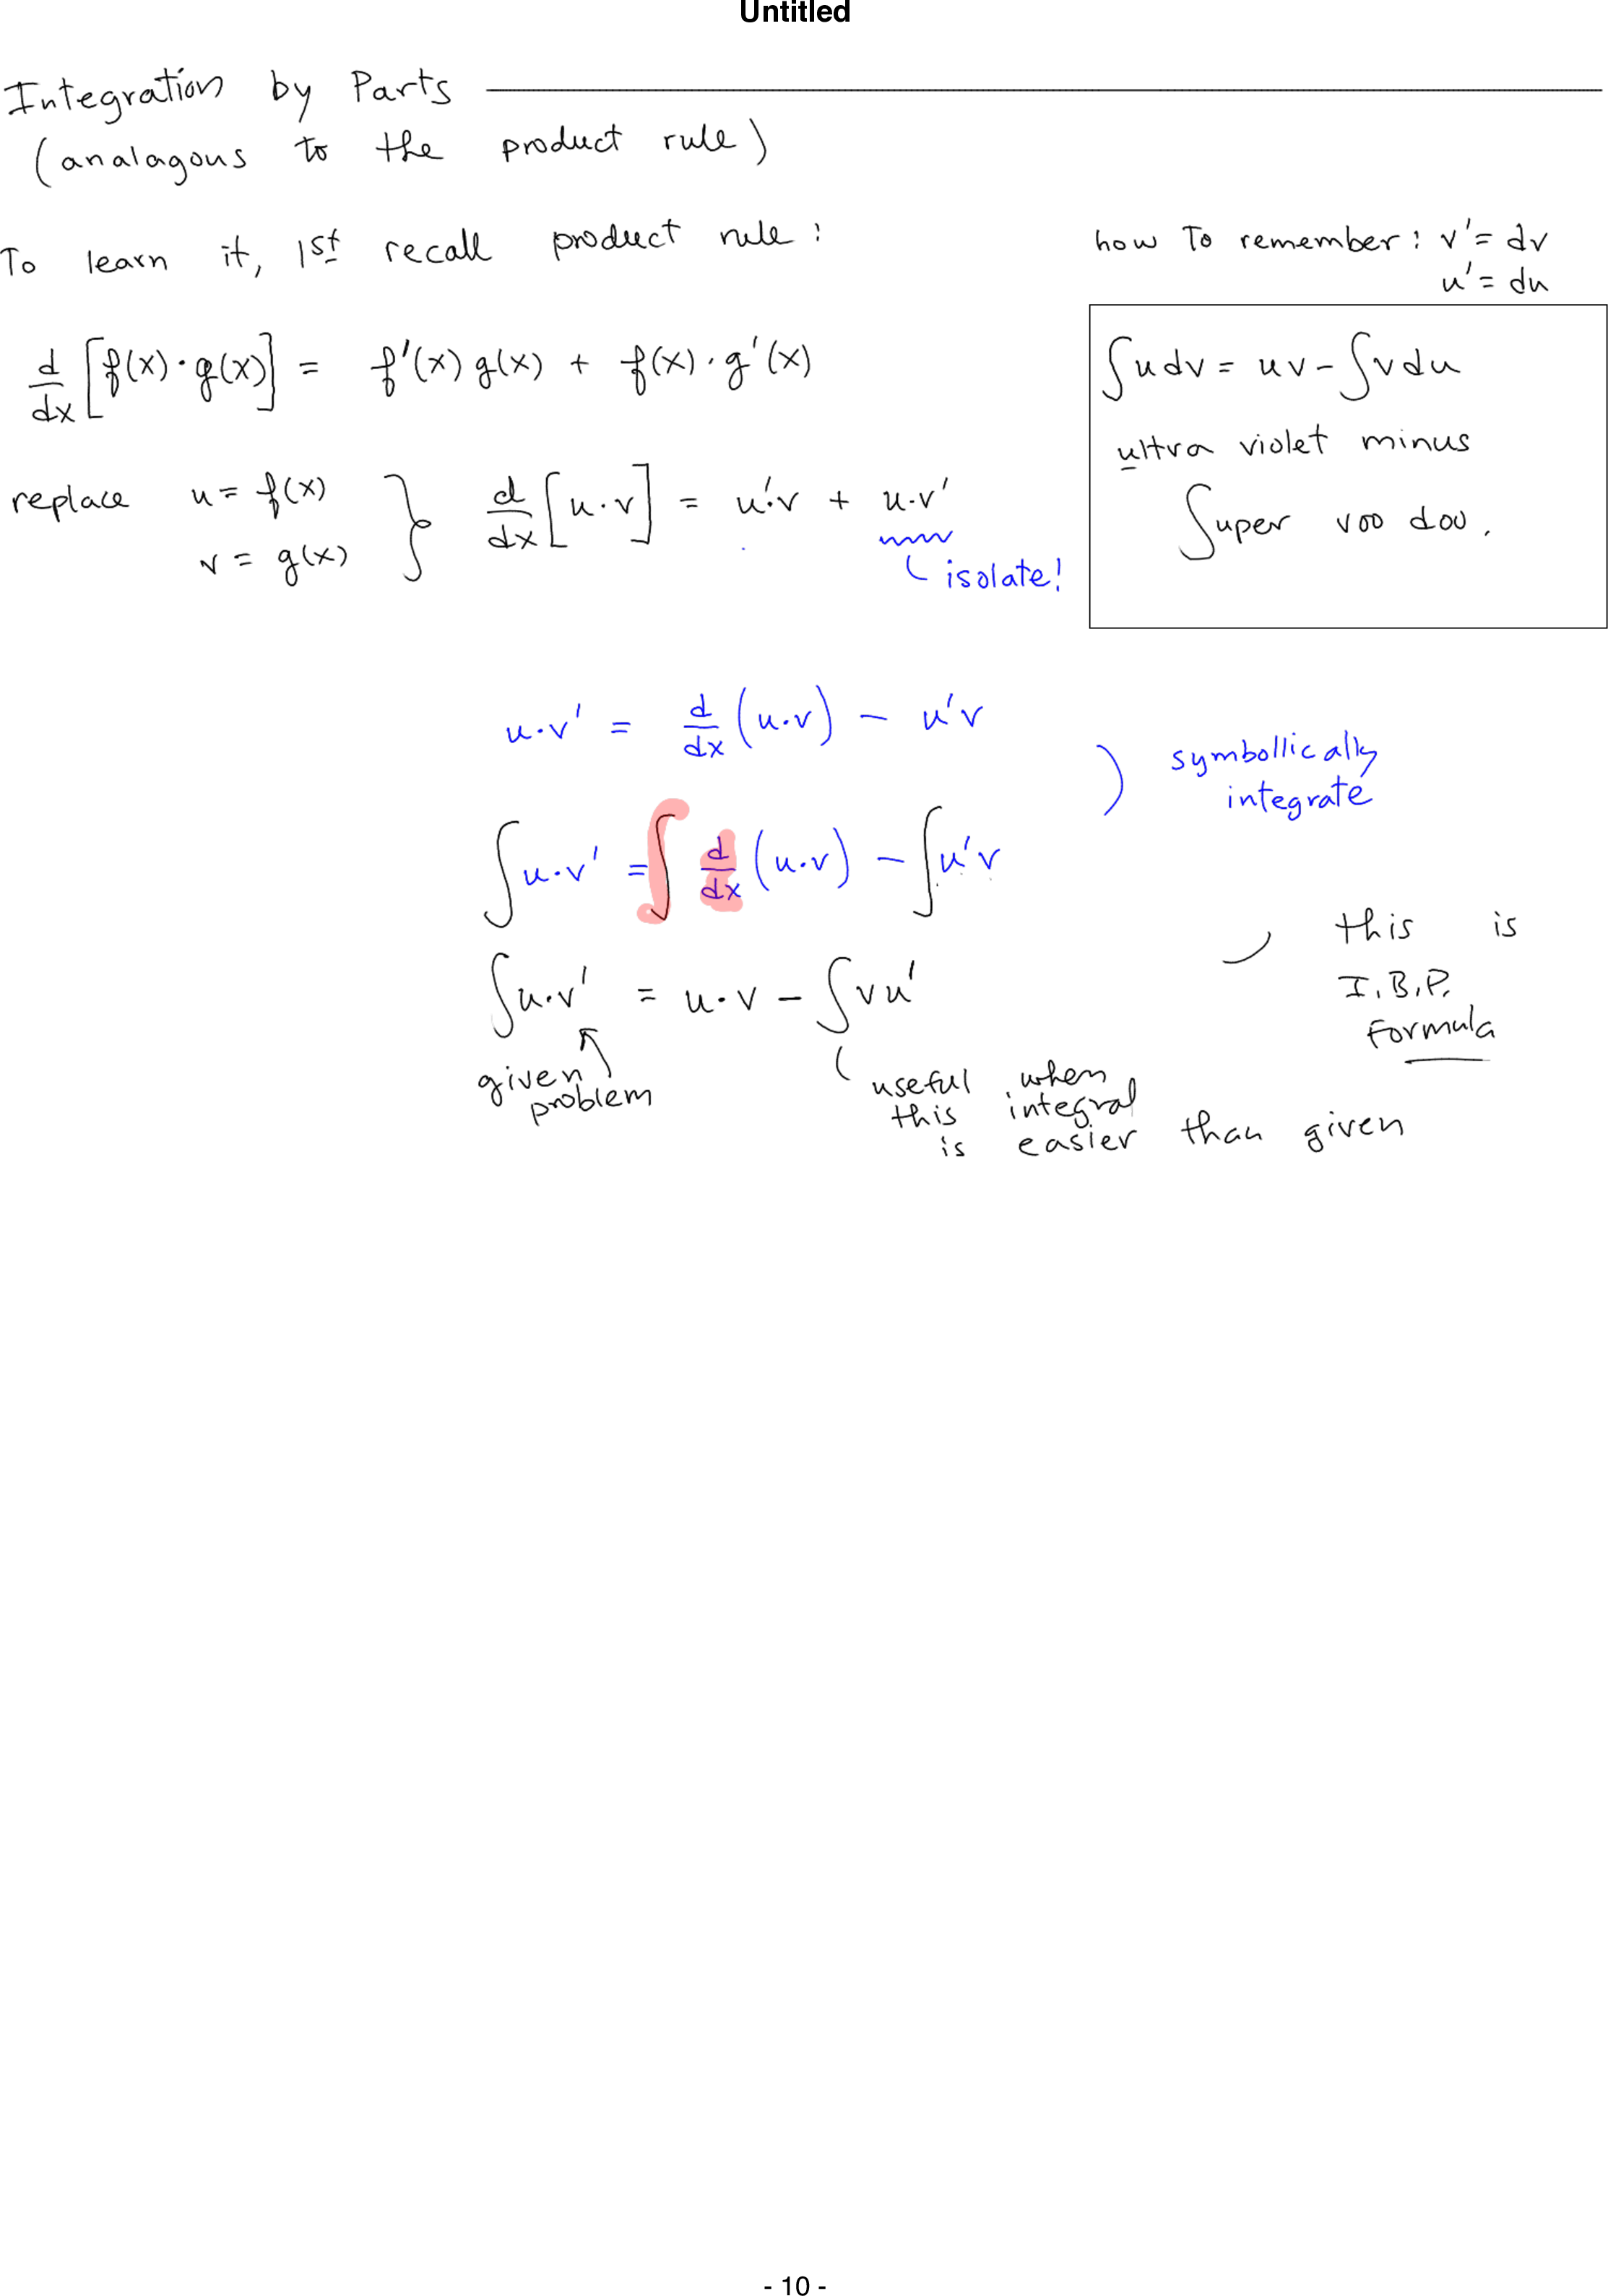 Untitled
Integration by Parts
(analagous to the product rule)
To learn it, 1st recall product rule:
how to remember: v' = dv
u' = du
d/dx [f(x)·g(x)] = f'(x) g(x) + f(x)·g'(x)
∫u dv = uv - ∫v du
ultra violet minus
∫uper voo doo.
replace u = f(x)
v = g(x)
} d/dx [u·v] = u'·v + u·v'
isolate!
u·v' = d/dx (u·v) - u'v
symbollically
integrate
∫u·v' = ∫ d/dx (u·v) - ∫u'v
this is
I.B.P.
Formula
∫u·v' = u·v - ∫vu'
given
problem
useful when
this integral
is easier than given
- 10 -